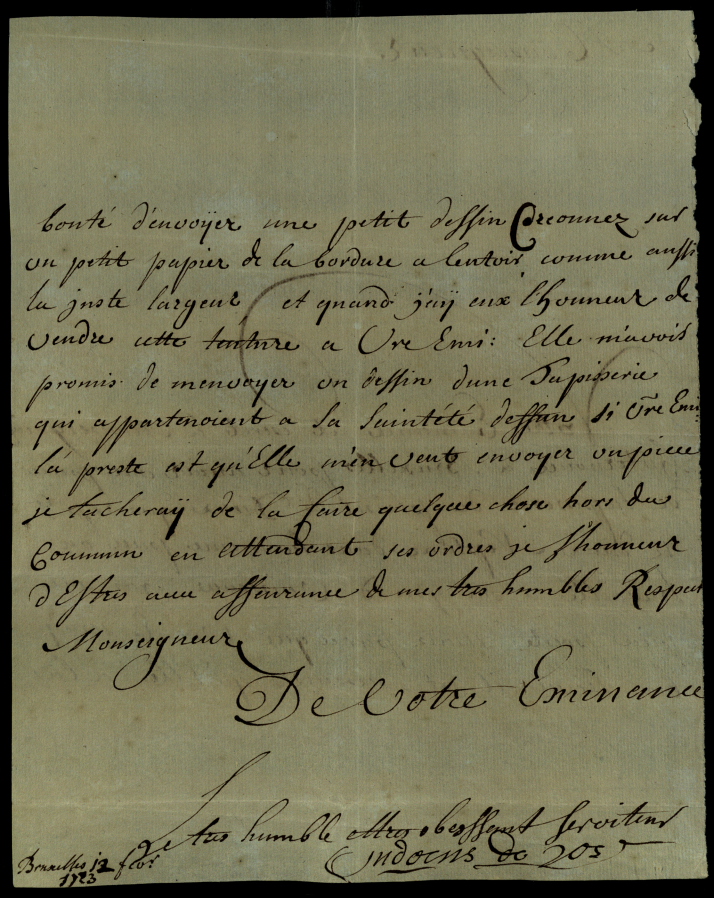 bonté d'envoÿer une petit dessin Creonnez sur
un petit papier de la bordure a lentoir comme aussi
la juste largeur et quand j'aÿ eux l'honneur de
vendre cette tenture a Vre Emi: Elle m'avois
promis de menvoyer un dessin dune Tapisserie
qui appartenoient a Sa Saintété dessan si Vre Emi:
la preste est qu'Elle m'en veut envoyer un piece
je tacheraÿ de la faire quelque chose hors du
Commun en attendant ses ordres je l'honneur
d'Estre avec asseurance de mes tres humbles Respect
Monseigneur
De Votre Eminance
Le tres humble et tres obeissant serviteur
Judocus de Vos
Bruxelles 12 febr
1723